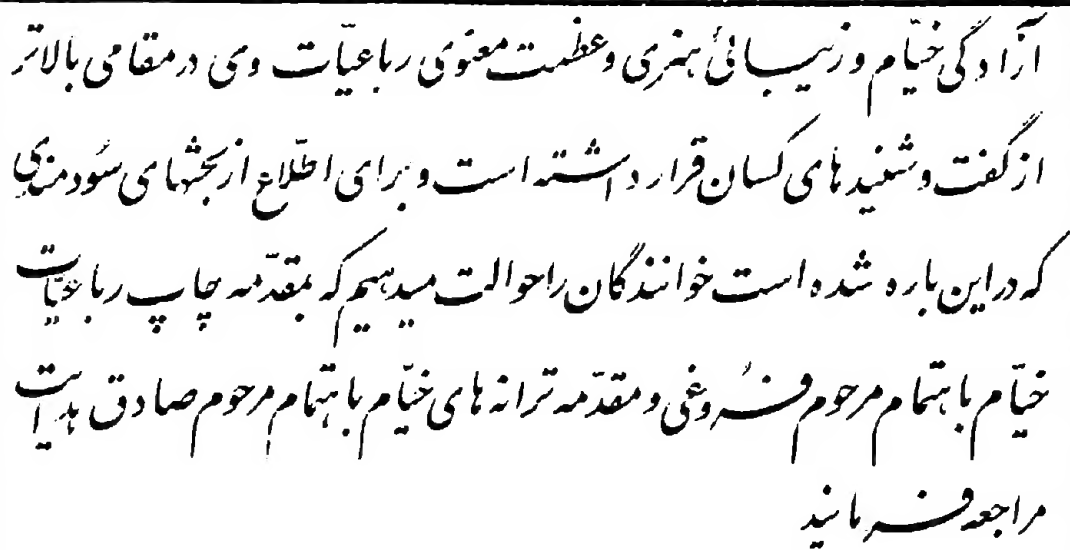 آزادگی خیّام و زیبائی هنری و عظمت معنوی رباعیّات وی در مقامی بالاتر
از گفت و شنیدهای کسان قرار داشته است و برای اطّلاع از بحثهای سُودمندی
که در این باره شده است خوانندگان را حوالت میدهیم که بمقدّمه چاپ رباعیّات
خیّام باهتمام مرحوم فُروغی و مقدّمه ترانه های خیّام باهتمام مرحوم صادق هدایت
مراجعه فرمایند